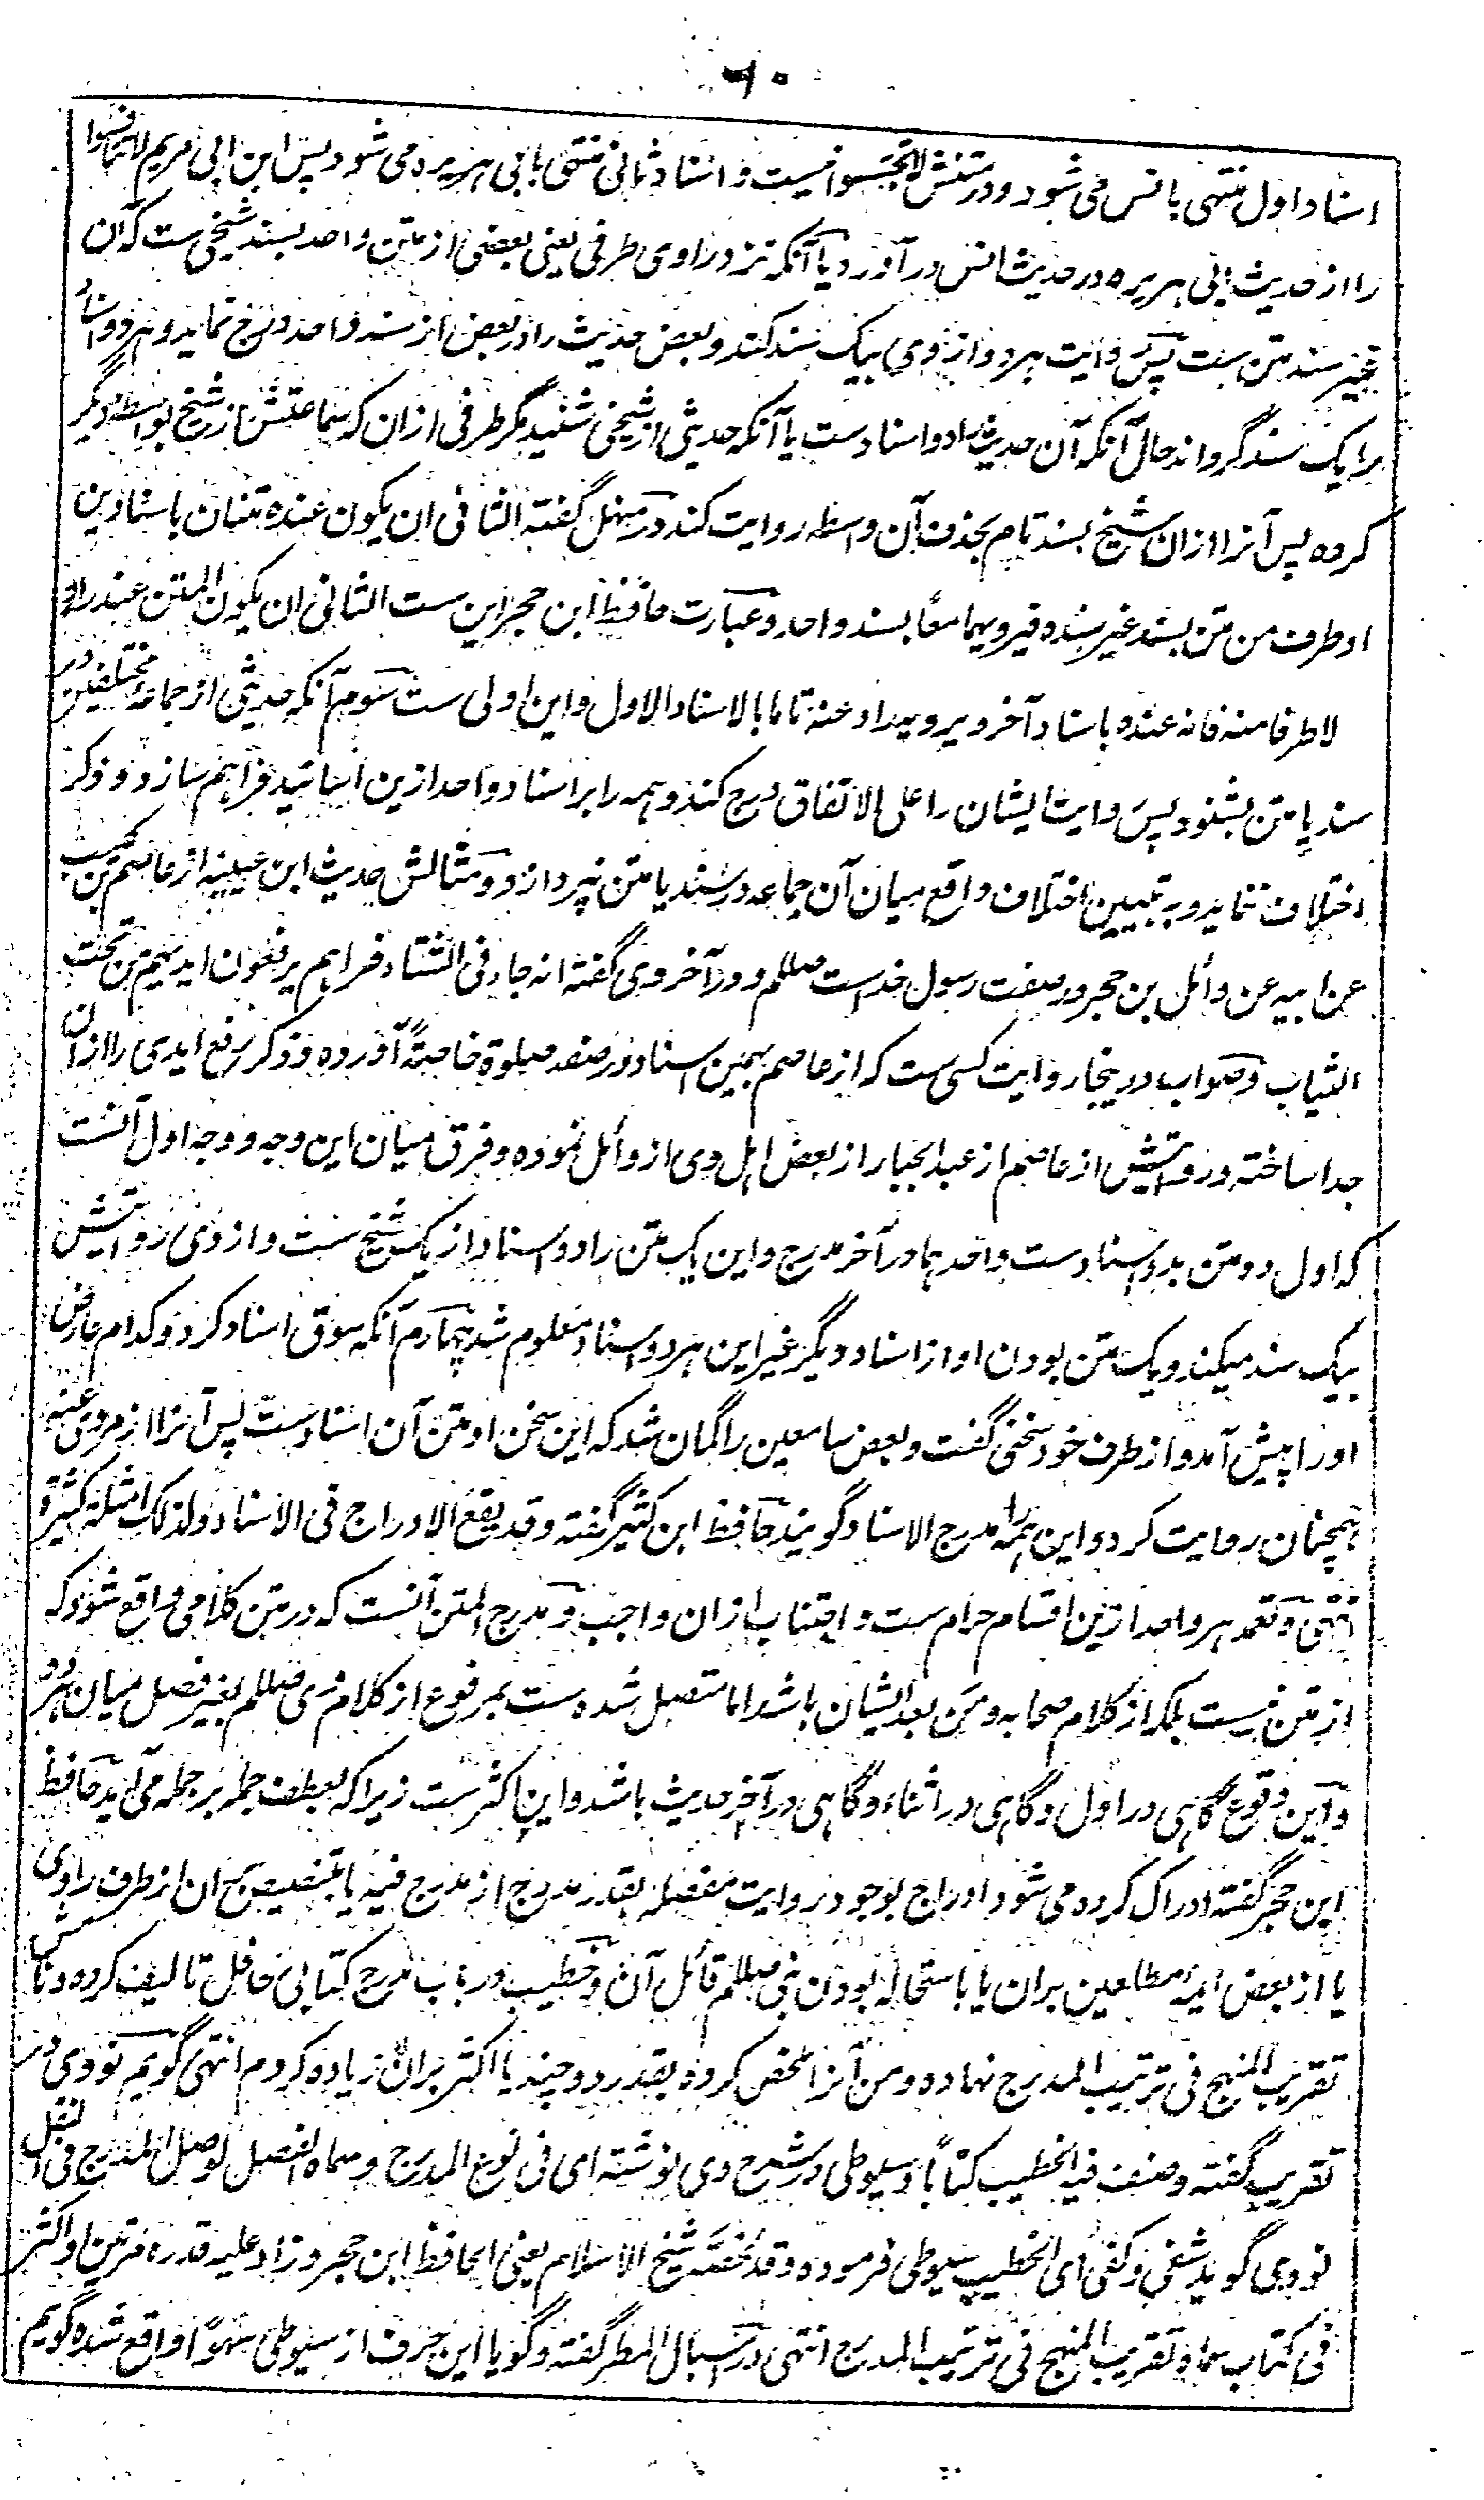 ۶۰
اسناد اول منتهی بانس می شود و در متنش لاتجسسوا نیست و اسناد ثانی منتهی بابی هریره می شود پس ابن ابی مریم لاتنافسوا
را از حدیث ابی هریره در حدیث انس در آورد یا آنکه نزد راوی طرفی یعنی بعضی از متن واحد بسند شیخی ست که آن
غیر سند متن ست پس روایت هر دو از وی بیک سند کند و بعض حدیث را در بعض از سند واحد درج نماید و هر دو اسناد
را یک سند گرداند حال آنکه آن حدیث را دو اسناد ست یا آنکه حدیثی از شیخی شنید مگر طرفی ازان که سماعتش از شیخ بواسطه دیگر
کرده پس آنرا ازان شیخ بسند تام بحذف آن واسطه روایت کند در منهل گفته الثانی ان یکون عنده متنان باسنادین
او طرف من متن بسند غیر سنده فیرویهما معا بسند واحد و عبارت حافظ ابن حجر این ست الثانی ان یکون المتن عند راو
لا طرفا منه فانه عنده باسناد آخر و یرویه راو عنه تاما بالاسناد الاول و این اولی ست سوم آنکه حدیثی از جماعه مختلفین در
سند یا متن بشنود پس روایت ایشان را علی الاتفاق درج کند و همه را بر اسناد واحد ازین اسانید فراهم سازد و ذکر
اختلاف ننماید و به تبیین اختلاف واقع میان آن جماعه در سند یا متن نپردازد و مثالش حدیث ابن عیینه از عاصم بن کلیب
عن ابیه عن وائل بن حجر در صفت رسول خداست صللم و در آخر وی گفته انه جاء فی الشتاء فراهم یرفعون ایدیهم من تحت
الثیاب و صواب درینجا روایت کسی ست که از عاصم بهمین اسناد در صفة صلوة خاصةً آورده و ذکر رفع ایدی را ازان
جدا ساخته و روایتش از عاصم از عبد الجبار از بعض اهل وی از وائل نموده و فرق میان این وجه و وجه اول آنست
که اول دو متن بدو اسناد ست و احدهما در آخر مدرج و این یک متن را دو اسناد از یک شیخ ست و از وی روایتش
بیک سند میکند و یک متن بودن او از اسناد دیگر غیر این هر دو اسناد معلوم شد چهارم آنکه سوق اسناد کرد و کدام عارض
او را پیش آمد و از طرف خود سخنی گفت و بعض سامعین را گمان شد که این سخن او متن آن اسناد ست پس آنرا از مروی عنه
همچنان روایت کرد و این همه را مدرج الاسناد گویند حافظ ابن کثیر گفته و قد یقع الادراج فی الاسناد و لذلک امثلة کثیرة
انتهی و تعمد هر واحد ازین اقسام حرام ست و اجتناب ازان واجب و مدرج المتن آنست که در متن کلامی واقع شود که
از متن نیست بلکه از کلام صحابه و من بعد ایشان باشد اما متصل شده ست بمرفوع از کلام نبی صللم بغیر فصل میان هر دو
و این وقوع گاهی در اول و گاهی در اثناء و گاهی در آخر حدیث باشد و این اکثر ست زیرا که بعطف جمله بر جمله می آید حافظ
ابن حجر گفته ادراک کرده می شود ادراج بوجود روایت مفصله بقدر مدرج از مدرج فیه یا بتنصیص بران از طرف راوی
یا از بعض ایمه مطلعین بران یا باستحاله بودن نبی صللم قائل آن و خطیب در باب مدرج کتابی حافل تالیف کرده و نامش
تقریب المنهج فی ترتیب المدرج نهاده و من آنرا ملخص کرده بقدر دو چند یا اکثر بران زیاده کردم انتهی گویم نووی در
تقریب گفته و صنف فیه الخطیب کتاباً و سیوطی در شرح وی نوشته ای فی نوع المدرج و سماه الفصل لوصل المدرج فی النقل
نووی گوید شفی و کفی ای الخطیب سیوطی فرموده و قد لخصه شیخ الاسلام یعنی الحافظ ابن حجر و زاد علیه قدره مرتین او اکثر
فی کتاب سماه تقریب المنهج فی ترتیب المدرج انتهی در اسبال المطر گفته و گویا این حرف از سیوطی سهواً واقع شده گویم